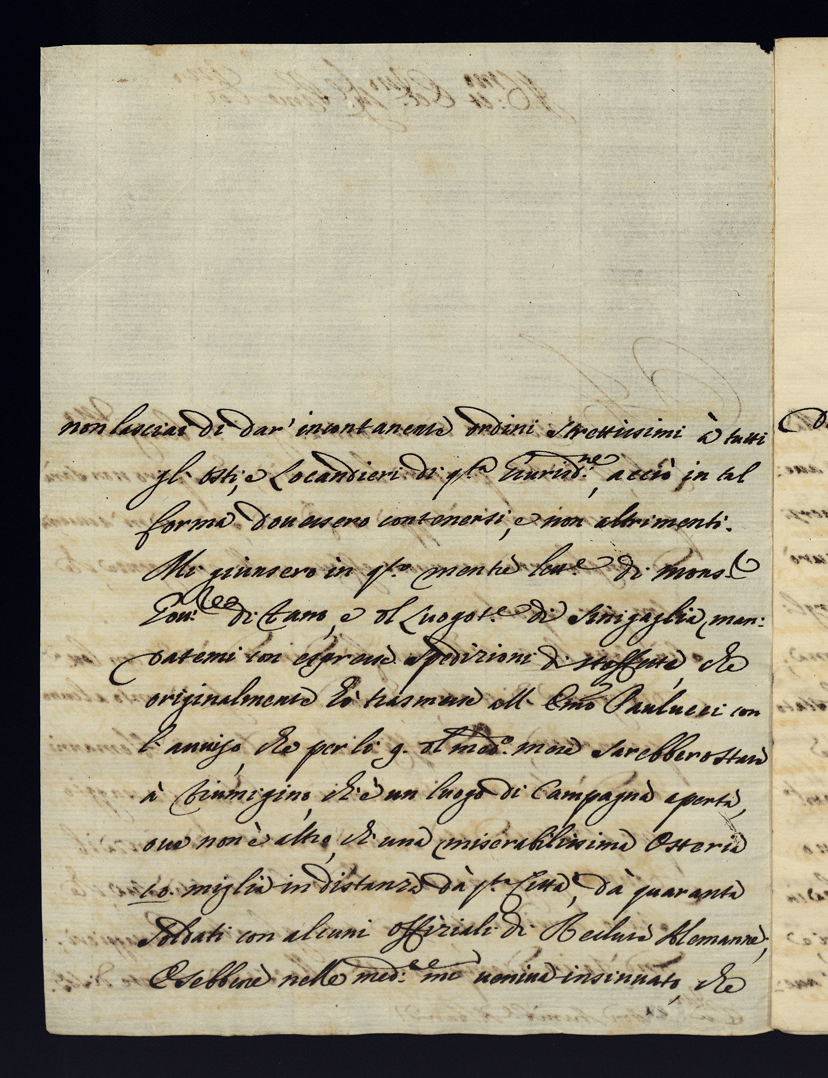 non lasciai di dar' incontanente ordini strettissimi à tutti
gl' osti, e Locandieri di q.ta Giurisd.ne, acciò in tal
forma douessero contenersi, e non altrimenti.
Mi giunsero in q.to mentre lett.e di mons.r
Gou.re di Fano, e del Luogot.e di Sinigaglia, man:
datemi con espresse spedizioni di staffetta, che
originalmente hò trasmesse all' Emo Paulucci con
l' auuiso, che per li 9. del med.o mese sarebbero state
à Fiumigino, ch' è un luogo di Campagna aperta,
oue non è altro, ch' una miserabilissima Osteria
10. miglia in distanza dà q.ta Città, dà quaranta
Soldati con alcuni Offiziali di Reclute Alemanne;
E sebbene nelle med.me ueniua insinuato, che